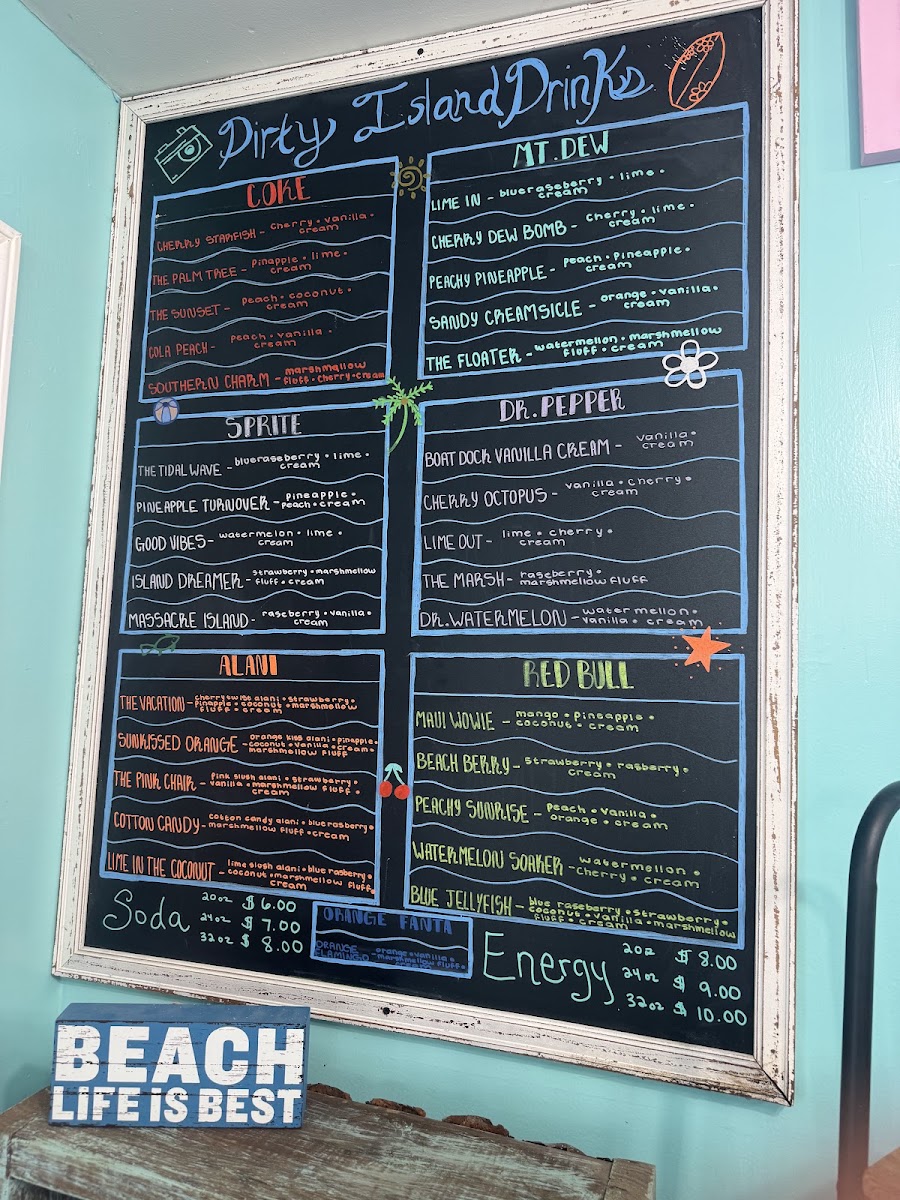 Dirty Island Drinks
COKE
CHERRY STARFISH - cherry • vanilla •
cream
THE PALM TREE - pinapple • lime •
cream
THE SUNSET - peach • coconut •
cream
COLA PEACH - peach • vanilla •
cream
SOUTHERN CHARM - marshmallow
fluff • cherry • cream
MT. DEW
LIME IN - blueraseberry • lime •
cream
CHERRY DEW BOMB - cherry • lime •
cream
PEACHY PINEAPPLE - peach • pineapple •
cream
SANDY CREAMSICLE - orange • vanilla •
cream
THE FLOATER - watermellon • marshmellow
fluff • cream
SPRITE
THE TIDAL WAVE - blueraseberry • lime •
cream
PINEAPPLE TURNOVER - pineapple •
peach • cream
GOOD VIBES - watermelon • lime •
cream
ISLAND DREAMER - strawberry • marshmellow
fluff • cream
MASSACRE ISLAND - raseberry • vanilla •
cream
DR. PEPPER
BOAT DOCK VANILLA CREAM - vanilla •
cream
CHERRY OCTOPUS - vanilla • cherry •
cream
LIME OUT - lime • cherry •
cream
THE MARSH - raseberry •
marshmellow fluff
DR. WATERMELON - water mellon •
vanilla • cream
ALANI
THE VACATION - cherry twist alani • strawberry •
pinapple • coconut • marshmellow
fluff • cream
SUNKISSED ORANGE - orange kiss alani • pinapple •
coconut • vanilla • cream •
marshmellow fluff
THE PINK CHAIR - pink slush alani • strawberry •
vanilla • marshmellow fluff •
cream
COTTON CANDY - cotton candy alani • blue rasberry •
marshmellow fluff • cream
LIME IN THE COCONUT - lime slush alani • blue rasberry •
coconut • marshmellow fluff •
cream
RED BULL
MAUI WOWIE - mango • pinsapple •
coconut • cream
BEACH BERRY - strawberry • rasberry •
cream
PEACHY SUNRISE - peach • vanilla •
orange • cream
WATERMELON SOAKER - watermellon •
cherry • cream
BLUE JELLYFISH - blue raseberry • strawberry •
coconut • vanilla • marshmellow
fluff • cream
Soda
20oz $6.00
24oz $7.00
32oz $8.00
ORANGE FANTA
ORANGE FLAMINGO - orange • vanilla •
marshmellow fluff •
cream
Energy
20z $8.00
24oz $9.00
32oz $10.00
BEACH
LIFE IS BEST